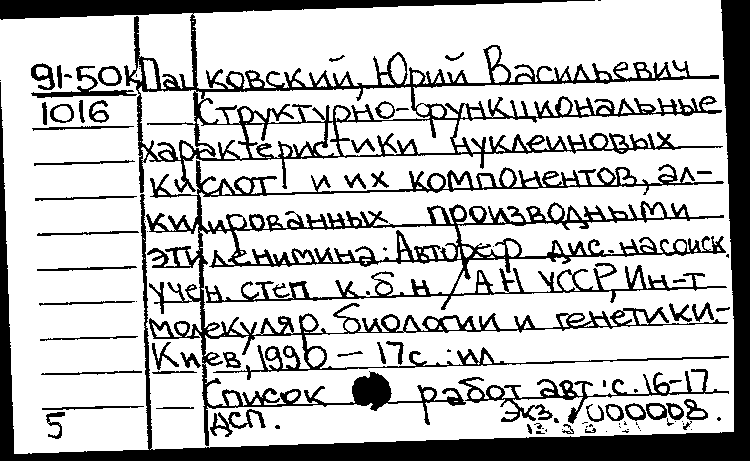 91-50к Пацковский, Юрий Васильевич
1016 Структурно-функциональные
характеристики нуклеиновых
кислот и их компонентов, ал-
килированных производными
этиленимина: Автореф дис. на соиск
учен. степ к.б.н. / АН УССР, Ин-т
молекуляр. биологии и генетики.-
Киев, 1990.— 17с.: ил.
Список работ авт.: с. 16-17.
5 ДСП. Экз. 000008.